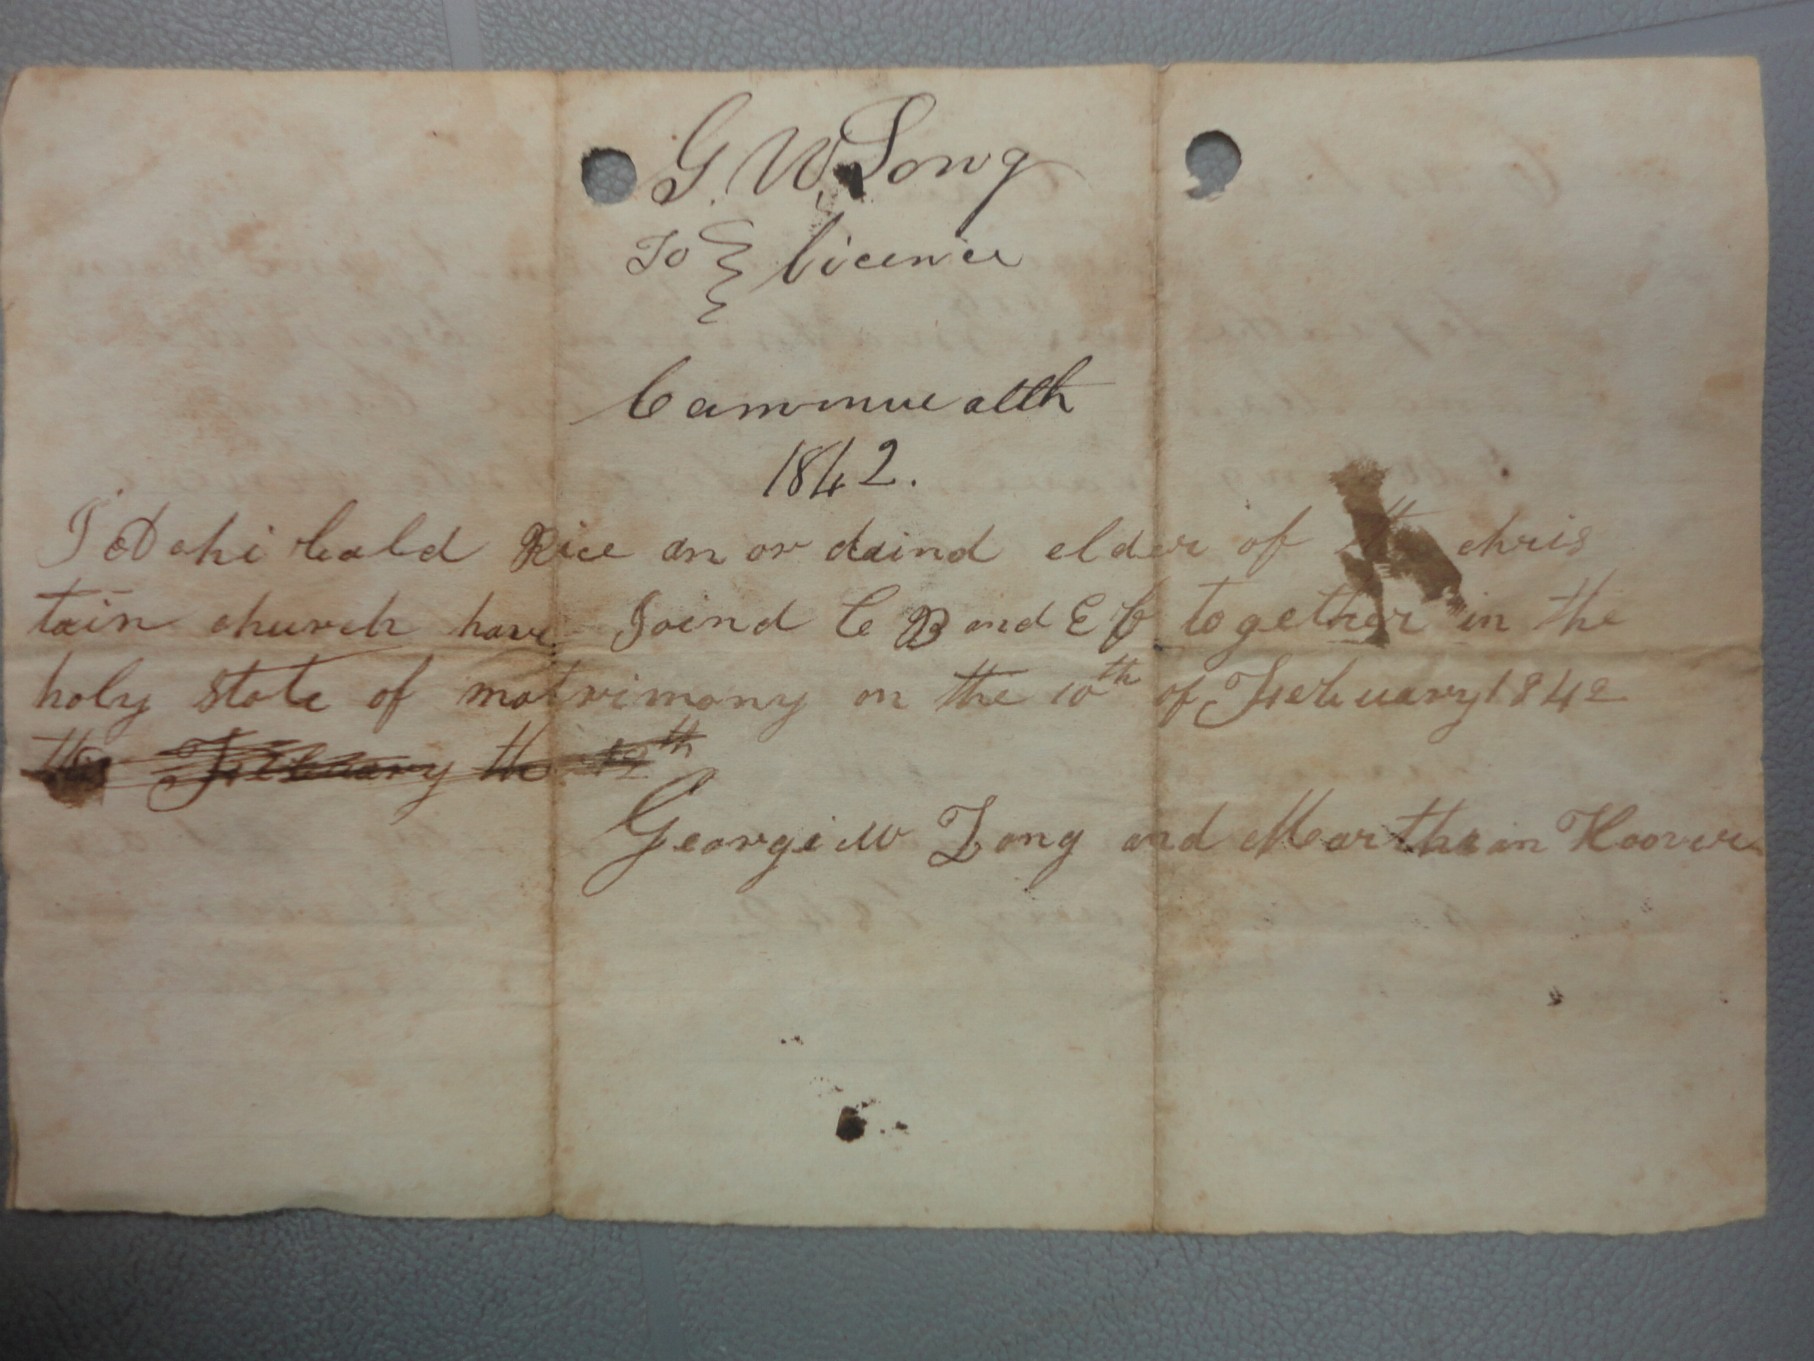 G. W. Long
To licence
Commonwealth
1842.
I Achibald Rice an or daind elder of the chris
tain church have Joind C B and E C together in the
holy state of matrimony on the 10th of Februuary 1842
the February the 12th
George W Long and Marthean Hoover